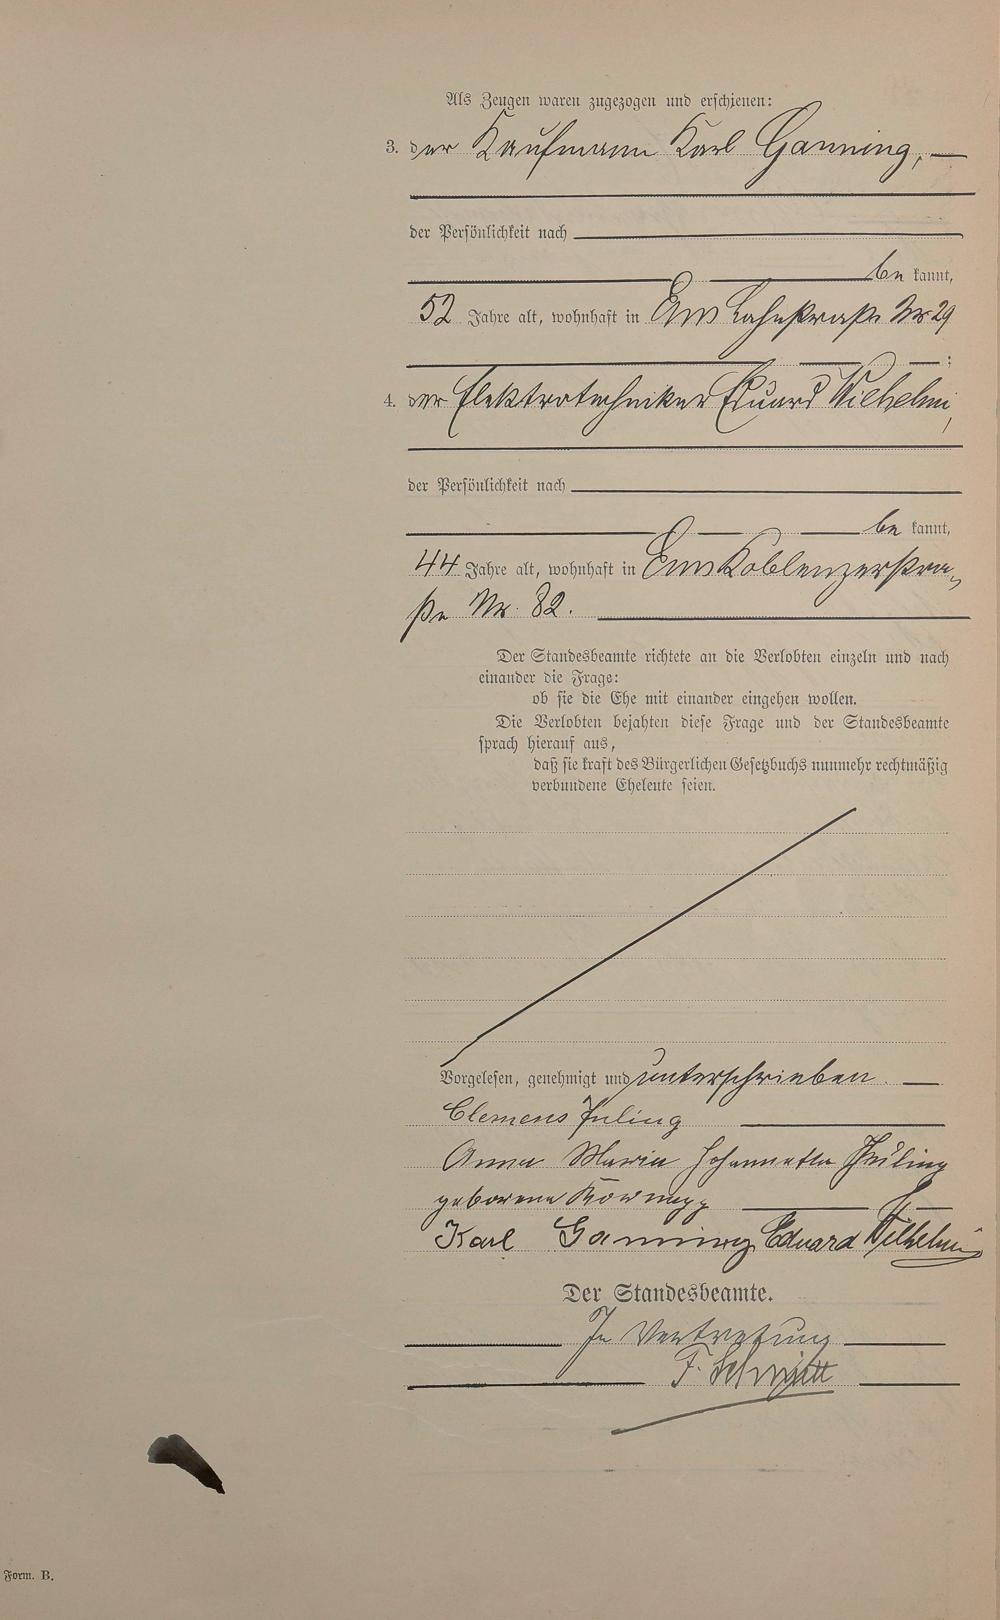 Als Zeugen waren zugezogen und erschienen:
3. der Kaufmann Karl Ganning,
der Persönlichkeit nach
be kannt,
52 Jahre alt, wohnhaft in Ems Lahnstraße Nr 29
;
4. der Elektrotechniker Eduard Wilhelmi,
der Persönlichkeit nach
be kannt,
44 Jahre alt, wohnhaft in Ems Koblenzerstra-
ße Nr. 82.
Der Standesbeamte richtete an die Verlobten einzeln und nach
einander die Frage:
ob sie die Ehe mit einander eingehen wollen.
Die Verlobten bejahten diese Frage und der Standesbeamte
sprach hierauf aus,
daß sie kraft des Bürgerlichen Gesetzbuchs nunmehr rechtmäßig
verbundene Eheleute seien.
Vorgelesen, genehmigt und unterschrieben.
Clemens
Anna Maria Johannetta
geborene
Karl Ganning Eduard Wilhelmi
Der Standesbeamte.
In Vertretung
F. Schmitt
Form. B.